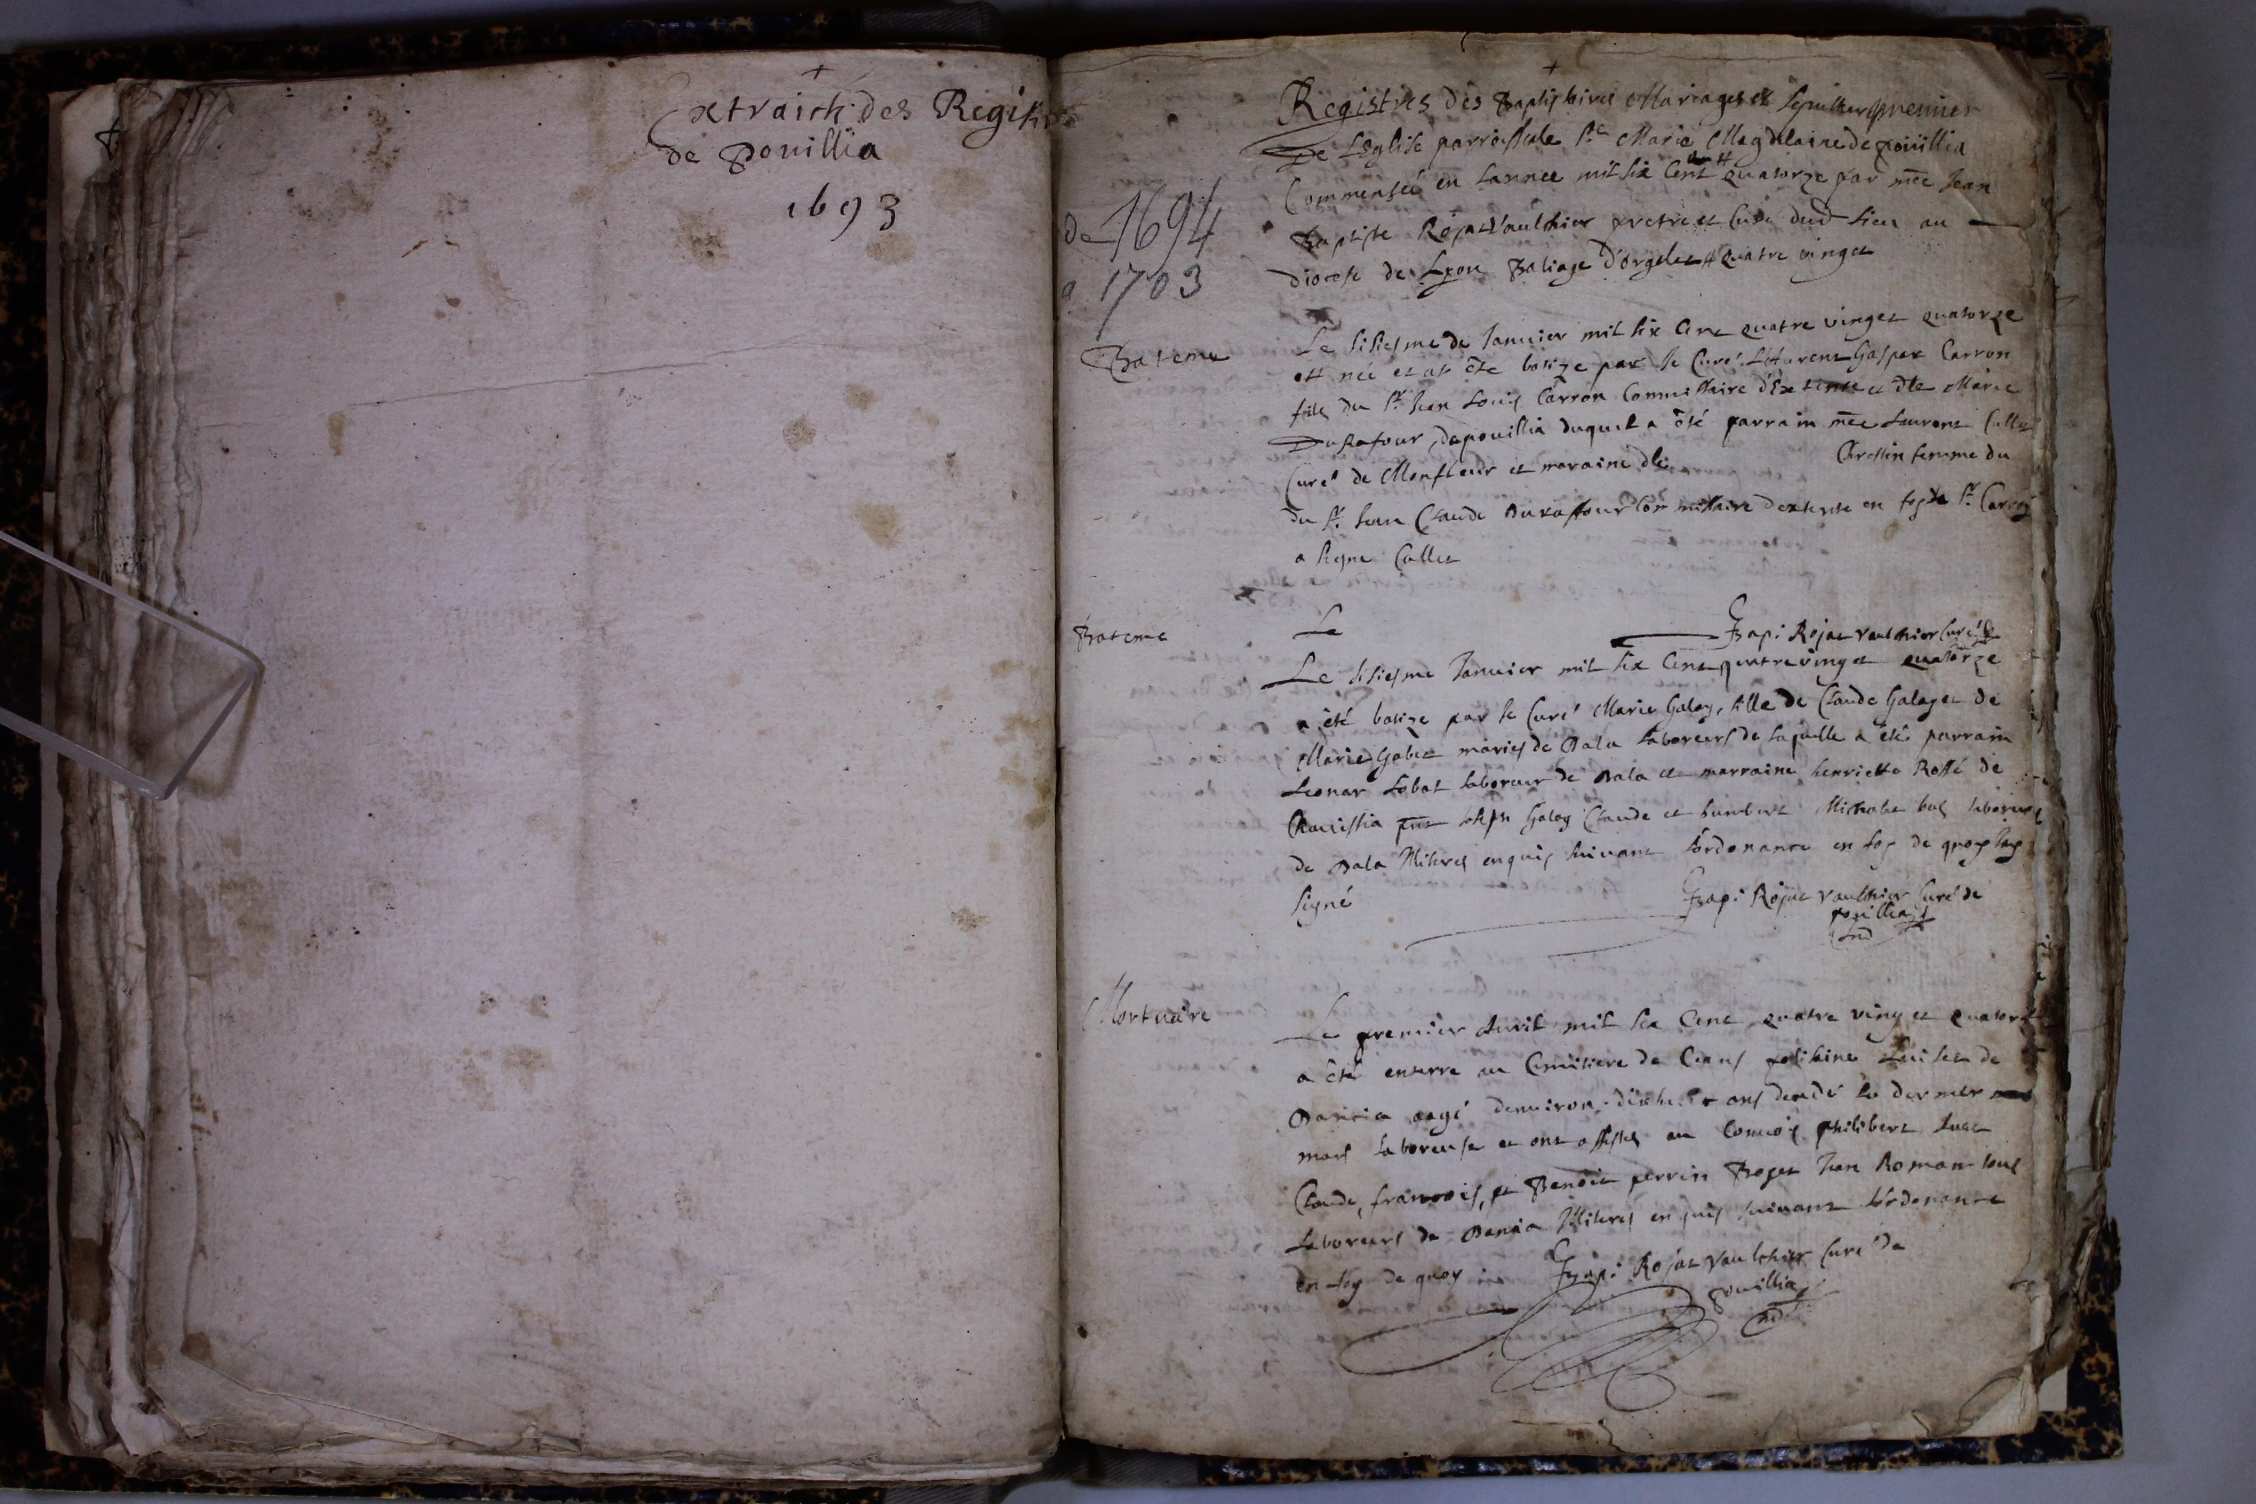 Extraict des Regist
de Pouillia
1693
de 1694
a 1703
Registres des Baptistaires Mariages et sepulture premier
De Leglise parroissiale Ste Marie Magdelaine de pouillia
Commensée en lannee mil six Cent # quatorze par mre Jean
Baptiste Rojat Vaulchier pretre et Curé dud Lieu au
diocese de Lyon Baliage D'orgelet # quatre vinget
Bateme
Le sisiesme de Janvier mil six Cent quatre vinget quatorze
est née et at été batize par le Curé Laurent Gaspar Carron
fils du Sr. Jean Louis Carron Commissaire d'Extente et dlle Marie
Durafour de pouillia duquel a été parrain mre Laurent Callet
Curé de Monfleur et maraine dlle Cressin femme du
du Sr. Jean Claude Duraffour Commissaire dextente en foy le Sr. Carron
a signe Callet
Bapi Rojat Vaulchier Curé
Bateme
Le
Le sisiesme Janvier mil six Cent quatre vinget quatorze
a été batize par le Curé Marie Galay, fille de Claude Galay et de
Marie Gabet mariés de Dala laboreurs de laquelle a été parrain
Leonar Lobat laboreur de Dala et marraine henriette Rossé de
Chavissia pnt Joseph Galay Claude et humbert Michalet bas laboreurs
de Dala Illiteres enquis suivant l'ordonance en foy de quoy jay
signé
Bapi Rojat Vaulchier Curé de
pouillia
Mortuaire
Le premier Avril mil six Cent quatre vinget quatorze
a été enterre au Cemitiere de Ceans Luiset de
Dancia aagé denviron ans decedé le dernier
mars laboreuse et ont assistés au Convoy philibert Luset
Claude, francois, et Benoit perrin Boget Jean Roman tous
laboreurs de Dancia Illiteres enquis suivant l'ordonance
en foy de quoy
Bapi Rojat Vaulchier Curé de
pouillia